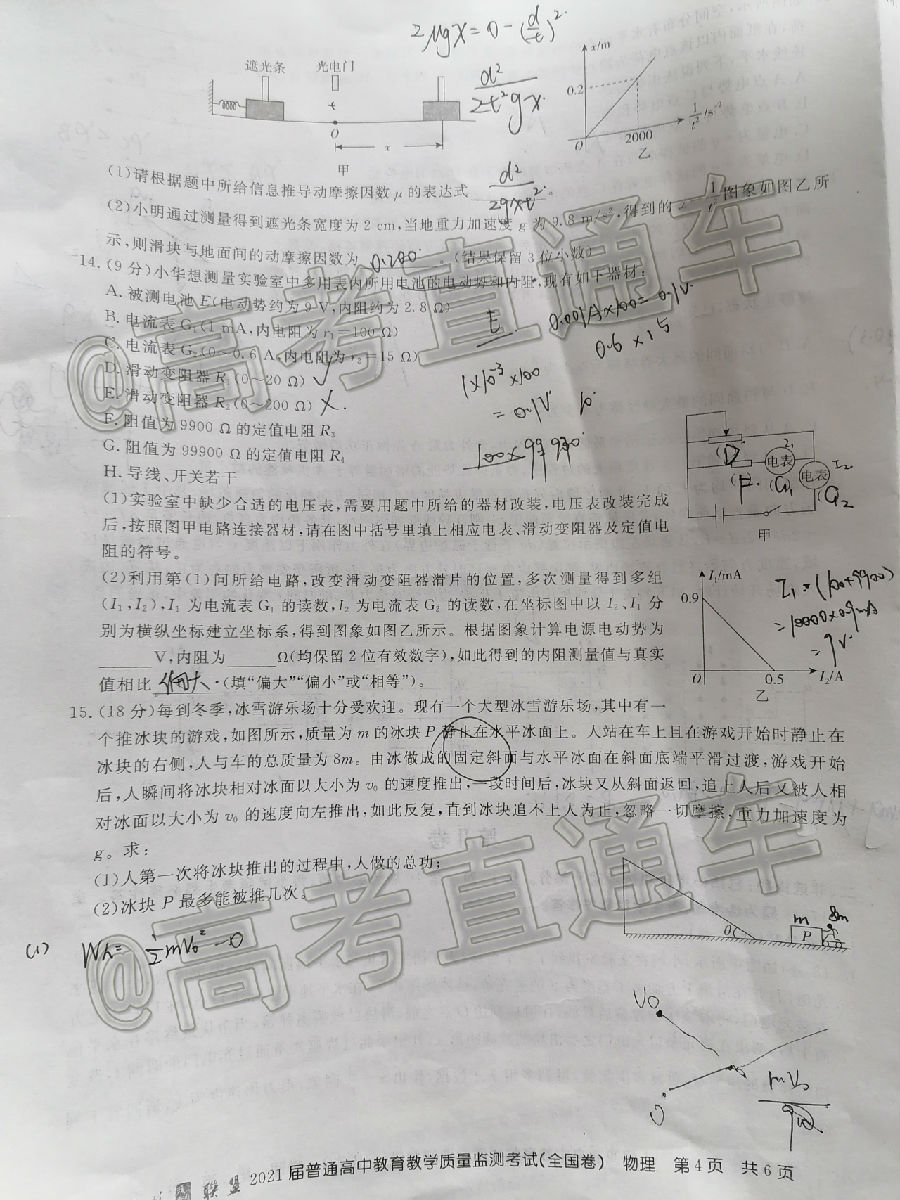 2μgx=0-(d/t)²
遮光条
光电门
d²/2t²gx
x/m
0.2
O
2000
1/t²/s⁻²
乙
O
x
甲
(1)请根据题中所给信息推导动摩擦因数μ的表达式 d²/2gxt² 。
(2)小明通过测量得到遮光条宽度为2 cm,当地重力加速度g为9.8 m/s²,得到的 图象如图乙所
示,则滑块与地面间的动摩擦因数为 。(结果保留3位小数)
14.(9分)小华想测量实验室中多用表内所用电池的电动势和内阻,现有如下器材:
A.被测电池E(电动势约为9 V,内阻约为2.8 Ω)
B.电流表G₁(1 mA,内电阻为r₁=100 Ω)
C.电流表G₂(0~0.6 A,内电阻为r₂=15 Ω)
D.滑动变阻器R₁(0~20 Ω)
E.滑动变阻器R₂(0~200 Ω)
F.阻值为9900 Ω的定值电阻R₃
G.阻值为99900 Ω的定值电阻R₄
H.导线、开关若干
E
0.001A×100=0.1V
0.6×15
1×10⁻³×100
=0.1V
(1)实验室中缺少合适的电压表,需要用题中所给的器材改装,电压表改装完成
后,按照图甲电路连接器材,请在图中括号里填上相应电表、滑动变阻器及定值电
阻的符号。
(D)
I₁
电表
I₂
(F)
(G₁)
电表
G₂
甲
(2)利用第(1)问所给电路,改变滑动变阻器滑片的位置,多次测量得到多组
(I₁,I₂),I₁为电流表G₁的读数,I₂为电流表G₂的读数,在坐标图中以I₁、I₂分
别为横纵坐标建立坐标系,得到图象如图乙所示。根据图象计算电源电动势为
V,内阻为 Ω(均保留2位有效数字),如此得到的内阻测量值与真实
值相比 偏大 (填“偏大”“偏小”或“相等”)。
I₁/mA
0.9
O
0.5
I₂/A
乙
I₁=(100+9900)
=10000×0.9mA
=9V
15.(18分)每到冬季,冰雪游乐场十分受欢迎。现有一个大型冰雪游乐场,其中有一
个推冰块的游戏,如图所示,质量为m的冰块P静止在水平冰面上。人站在车上且在游戏开始时静止在
冰块的右侧,人与车的总质量为8m。由冰做成的固定斜面与水平冰面在斜面底端平滑过渡,游戏开始
后,人瞬间将冰块相对冰面以大小为v₀的速度推出,一段时间后,冰块又从斜面返回,追上人后又被人相
对冰面以大小为v₀的速度向左推出,如此反复,直到冰块追不上人为止,忽略一切摩擦,重力加速度为
g。求:
(1)人第一次将冰块推出的过程中,人做的总功;
(2)冰块P最多能被推几次。
θ
m
P
8m
(1) W人=½mv₀²-0
v₀
0
@高考直通车
@高考直通车
联盟 2021届普通高中教育教学质量监测考试(全国卷) 物理 第4页 共6页